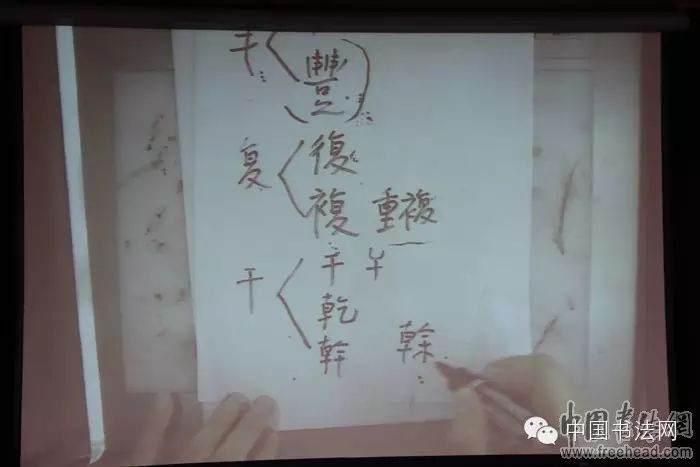 丰
豐
复
復
複 重複
干
干
乾
幹 榦
中国书法网
中国书法网
www.freehead.com